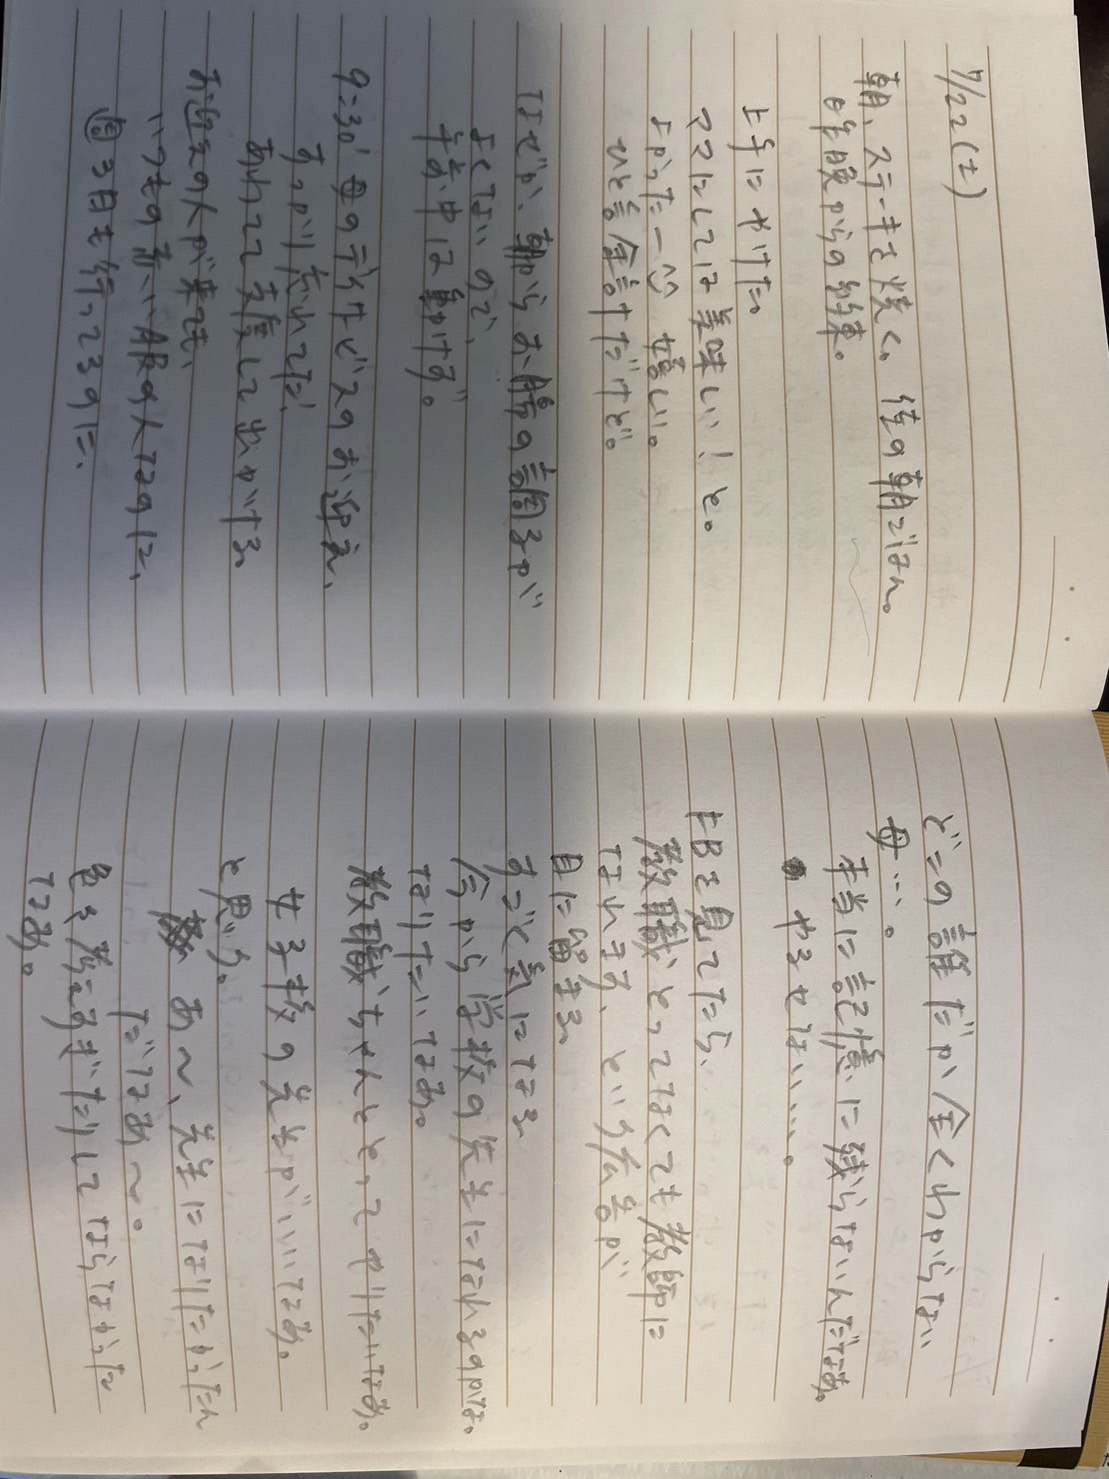 7/22(土)
朝、ステーキを焼く。怪の朝ごはん。
昨晩からの約束。
上手にやけた。
ママにしては美味しい！と。
よかったー 嬉しい。
ひと言余計だけど。
なぜか、朝からお腹の調子が
よくないので、
午前中は動けず。
9:30 母のデイサービスのお迎え、
すっかり忘れてた、
あわてて支度して出かける。
お迎えの人が来ても、
いつもの青い服の人なのに、
週3日も行ってるのに、
どこの誰だか全くわからない
母…。
本当に記憶に残らないんだなあ。
やるせない……。
FBを見てたら、
教職とってなくても教師に
なれます、という広告が
目に留まる
すごく気になる
今から学校の先生になれるのかな。
なりたいなあ。
教職ちゃんととってやりたいなあ。
女子校の先生がいいなあ。
と思う。
あ～、先生になりたかったん
だなあ～。
色々落ちすぎたりしてならなかった
なあ。